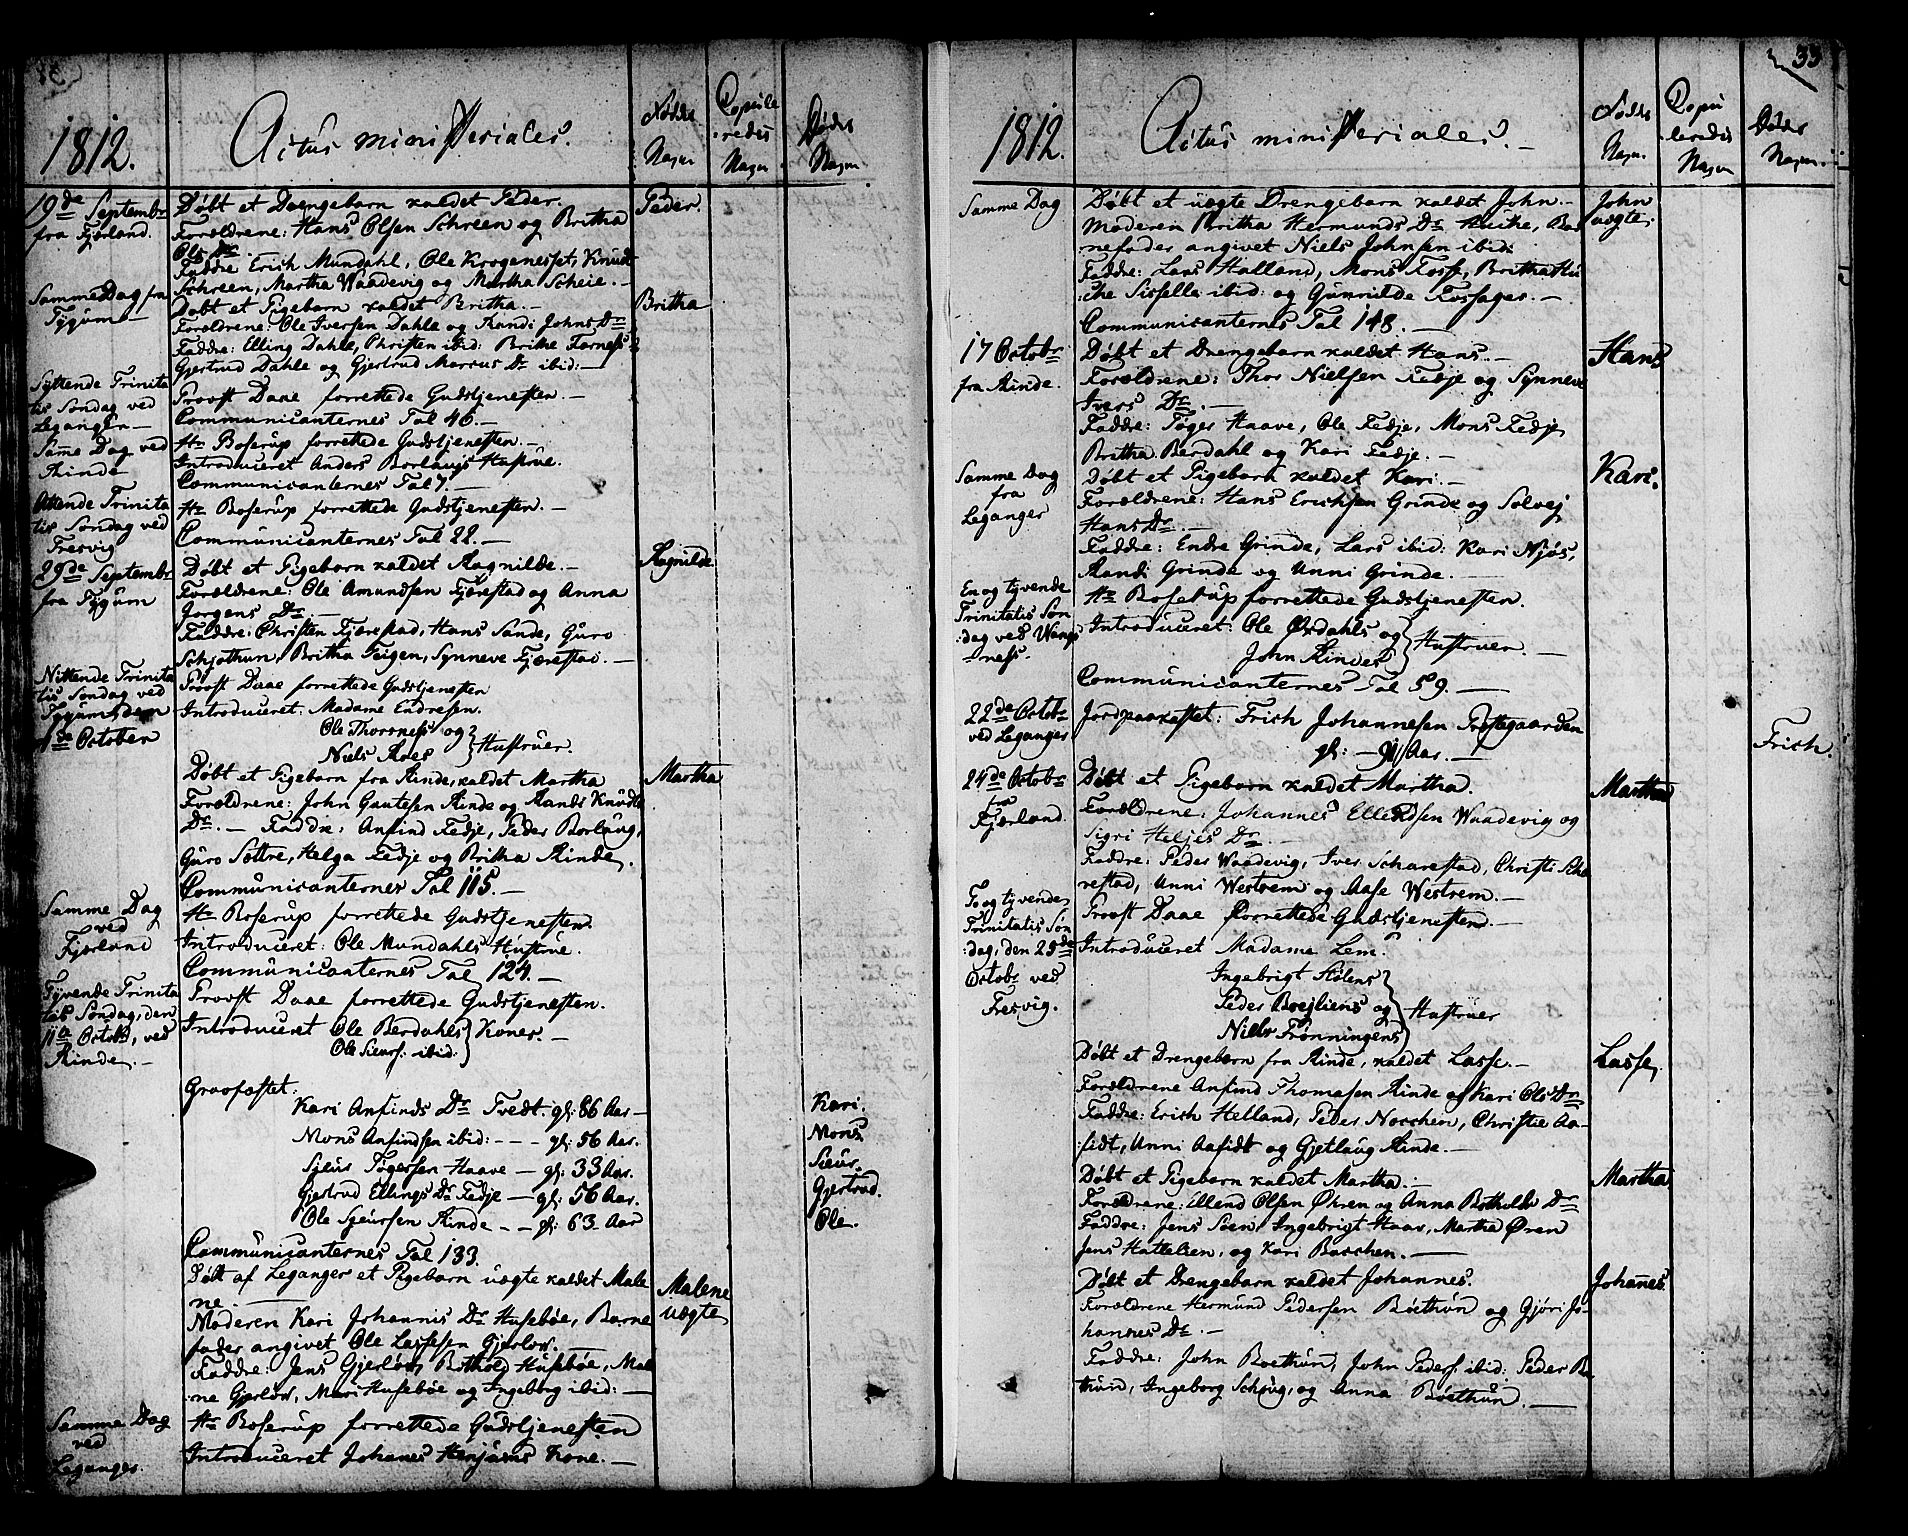 1812.
Actus ministeriales.
Fødde Nagn
Copulerede Nagn
Døde Nagn.
19de Septembr fra Fjærland.
Døbt et Drengebarn kaldet Peder.
Peder.
Forældrene: Hans Olsen Schreen og Britha
Ols Dr.
Faddre: Erich Mundahl, Ole Krogenesset, Knud
Schreen, Martha Waadevig og Martha Scheie.
Samme Dag fra Tygum
Døbt et Pigebarn kaldet Britha.
Britha
Forældrene: Ole Iversen Dahle og Randi Johns Dr
Faddre: Elling Dahle, Christen ibid: Brithe
Gjertrud Dahle og Gjertrud Marcus Dr ibid:
Syttende Trinitatis Søndag ved Leganger
Provst Daae forrettede Gudstjenesten.
Communicanternes Tal 46.
Samme Dag ved Rinde
Hr Boserup forrettede Gudstjenesten.
Introduceret Anders Borlaugs Hustrue.
Communicanternes Tal 7.
Attende Trinitatis Søndag ved Fresvig
Hr Boserup forrettede Gudstjenesten.
Communicanternes Tal 22.
29de Septembr fra Tygum
Døbt et Pigebarn kaldet Ragnilde.
Ragnilde
Forældrene: Ole Amundsen Fjærestad og Anna
Jørgens Dr.
Faddre: Christen Fjærestad, Hans Sande, Guro
Schjothun, Britha Teigen, Synneve Fjærestad.
Nittende Trinitatis Søndag ved Tygum, den 4de October
Provst Daae forrettede Gudstjenesten
Introduceret: Madame Endresen.
Ole Thorsness og
Niels Roes } Hustruer.
Døbt et Pigebarn fra Rinde, kaldet Martha
Martha
Forældrene: John Gautesen Rinde og Randi Knuds
Dr. Faddre: Anfind Fedje, Peder Borlaug,
Guro Sættre, Helga Fedje og Britha Rinde.
Communicanternes Tal 115.
Samme Dag ved Fjærland
Hr Boserup forrettede Gudstjenesten.
Introduceret: Ole Mundahls Hustrue.
Communicanternes Tal 124.
Tyvende Trinitatis Søndag, den 11te Octobr, ved Rinde.
Provst Daae forrettede Gudstjenesten.
Introduceret Ole Berdahls
Ole Sieurs. ibid: } Koner.
Gravfæstet.
Kari Anfinds Dr Tvedt. gl: 86 Aar
Kari.
Mons Anfindsen ibid: gl: 56 Aar.
Mons
Sieur Tøgersen Haave gl: 33 Aar.
Sieur.
Gjertrud Ellings Dr Fedje gl: 56 Aar.
Gjertrud.
Ole Sjeursen Rinde gl: 63 Aar
Ole.
Communicanternes Tal 133.
Døbt af Leganger et Pigebarn uægte kaldet Malene.
Malene uægte
Moderen Kari Johannis Dr Husebøe, Barnefader angivet Ole Lassesen Gjerløv.
Faddre: Jens Gjerløv, Bothold Husebøe, Malene Gjerløv, Mari Husebøe og Ingeborg ibid:
Samme Dag ved Leganger.
Hr Boserup forrettede Gudstjenesten
Introduceret Johanes Henjums Kone.
33
1812.
Actus ministeriales.
Fødde Nagn.
Copulerede Nagn
Døde Nagn.
Samme Dag
Døbt et uægte Drengebarn kaldet John.
John uægte.
Moderen Britha Hermunds Dr Huike, Barnefader angivet Niels Johnsen ibid:
Faddre: Lars Halland, Mons Fosse, Britha Huike Sisselle ibid: og Gunnilde Fossager.
Communicanternes Tal 148.
17 Octobr fra Rinde.
Døbt et Drengebarn kaldet Hans.
Hans
Forældrene: Thor Nielsen Fedje og Synneve
Ivers Dr.
Faddre: Tøger Haave, Ole Fedje, Mons Fedje
Britha Berdahl og Kari Fedje.
Samme Dag fra Leganger
Døbt et Pigebarn kaldet Kari.
Kari.
Forældrene: Hans Erichsen Grinde og Solvej
Hans Dr.
Faddre: Endre Grinde, Lars ibid: Kari Njøs,
Randi Grinde og Unni Grinde.
En og tyvende Trinitatis Søndag ved Wangsness.
Hr Boserup forrettede Gudstjenesten.
Introduceret: Ole Ørdahls og
John Rindes } Hustruer.
Communicanternes Tal 59.
22de Octobr ved Leganger
Jordpaakastet: Frich Johannesen Præstegaarden
gl: 91 Aar.
Frich.
24de Octobr fra Fjærland.
Døbt et Pigebarn kaldet Martha.
Martha
Forældrene: Johannes Ellendsen Waadevig og
Sigri Heljes Dr.
Faddre: Peder Waadevig, Iver Scharestad, Christi Scharestad, Unni Westrem og Aase Westrem.
To og tyvende Trinitatis Søndag, den 25de Octobr ved Fresvig.
Provst Daae forrettede Gudstjenesten.
Introduceret Madame Lem.
Ingebrigt Stølens
Peder Brejliens og
Niels Frønningens } Hustruer
Døbt et Drengebarn fra Rinde, kaldet Lasse.
Lasse.
Forældrene Anfind Thomasen Rinde og Kari Ols Dr
Faddre: Erich Helland, Peder Norchen, Christie Aafidt, Unni Aafidt og Gjetlaug Rinde.
Døbt et Pigebarn kaldet Martha.
Martha
Forældrene: Ellend Olsen Øhren og Anna Botholds Dr
Faddre: Jens Seen, Ingebrigt Haar, Martha Øren
Jens Hattelien, og Kari Barchen.
Døbt et Drengebarn kaldet Johannes.
Johanes.
Forældrene Hermund Pedersen Bøethun og Gjøri Johannes Dr.
Faddre: John Boethun, John Peders. ibid: Peder Bøthun, Ingeborg Schoug, og Anna Bøethun.